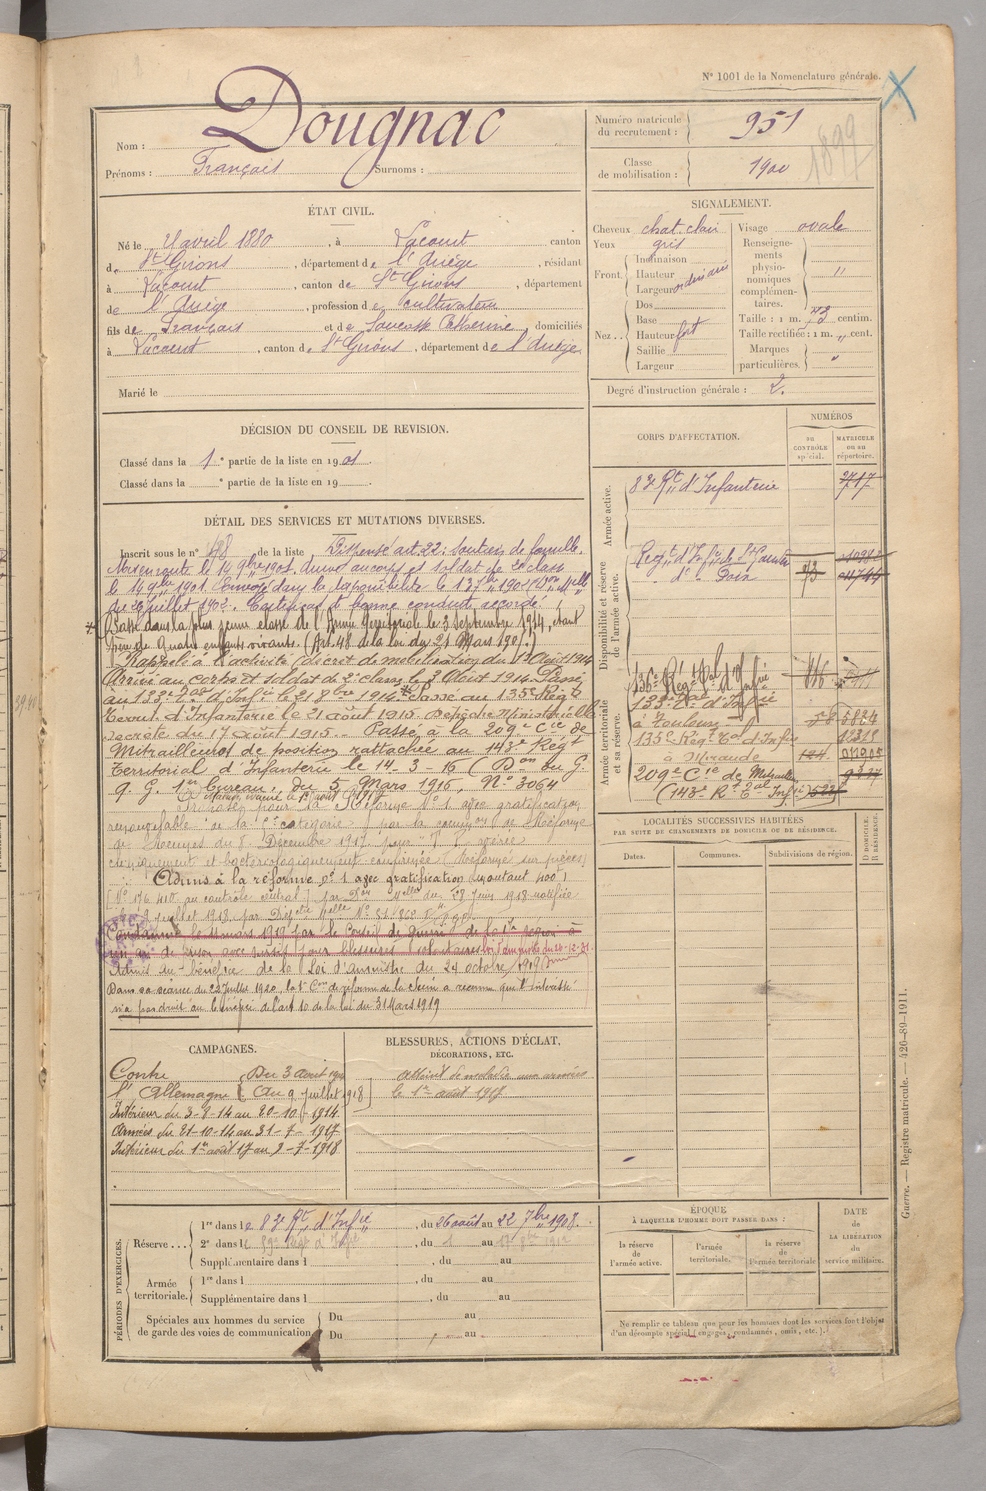 N° 1001 de la Nomenclature générale.
Nom : Dougnac
Prénoms : François Surnoms :
Numéro matricule du recrutement : 951
Classe de mobilisation : 1900
1899
ÉTAT CIVIL.
Né le 4 avril 1880, à Lacourt canton
de St Girons, département de l'Ariège, résidant
à Lacourt, canton de St Girons, département
de l'Ariège, profession de cultivateur
fils de François et de Catherine, domiciliés
à Lacourt, canton de St Girons, département de l'Ariège
Marié le
SIGNALEMENT.
Cheveux chat clair
Yeux gris
Front. Inclinaison
Hauteur ordinaire
Largeur
Nez. Dos
Base
Hauteur fort
Saillie
Largeur
Visage ovale
Renseignements physionomiques complémentaires. "
Taille : 1 m. 73 centim.
Taille rectifiée : 1 m. " cent.
Marques particulières. "
Degré d'instruction générale : 2.
DÉCISION DU CONSEIL DE REVISION.
Classé dans la 1e partie de la liste en 1901.
Classé dans la e partie de la liste en 19
CORPS D'AFFECTATION.
NUMÉROS
au CONTRÔLE spécial.
MATRICULE ou au répertoire.
Armée active.
83e Rt d'Infanterie 3717
Disponibilité et réserve de l'armée active.
Régt d'Infie de St Gaudens
d° Foix
Armée territoriale et sa réserve.
136e Régt Tal d'Infie
133e Tal d'Infie
à Toulouse
135e Régt Tal d'Infie
à Mirande
209e Cie de Mitrailleurs
(143e Rt Tal Infie)
DÉTAIL DES SERVICES ET MUTATIONS DIVERSES.
Inscrit sous le n° de la liste Dispensé art. 22 : soutien de famille.
Mis en route le 14 9bre 1901 dudit au corps et soldat de 2e classe
le 14 9bre 1901. Envoyé dans la disponibilité le 13 7bre 1902 (Don Melle
de 20 juillet 1902. Certificat de bonne conduite accordé.
Passé dans la plus jeune classe de l'Armée Territoriale le 3 Septembre 1914, étant
père de quatre enfants vivants. (Art. 48 de la loi du 21 Mars 1905.)
Rappelé à l'activité (décret de mobilisation du 1er Août 1914
Arrivé au corps et soldat de 2e classe le 3 Août 1914. Passé
au 133e Tal d'Infie le 21 8bre 1914. Passé au 135e Régt
Territ. d'Infanterie le 21 août 1915. Dépêche Ministérielle
secrète du 17 août 1915. Passé à la 209e Cie de
Mitrailleurs de position rattachée au 143e Régt
Territorial d'Infanterie le 14-3-16 (Don du G.
Q. G. 1er Bureau, du 5 Mars 1916, N° 3064
Proposé pour la Réforme N° 1 avec gratification
renouvelable de la catégorie par la common de Réforme
de Rennes du 8 Décembre 1917 pour
cliniquement et bactériologiquement confirmée (Réforme sur pièces)
Admis à la réforme n° 1 avec gratification
au contrôle central) par Don Melle du 28 Juin 1918 notifiée
le 9 juillet 1918
Condamné le 11 mars 1919 par le Conseil de guerre de la 1re région à
un an de prison avec sursis pour blessures volontaires
Admis au bénéfice de la Loi d'amnistie du 24 octobre 1919
Dans sa séance du 22 Juillet 1920, la Con de réforme de a reconnu que l'intéressé
n'a pas droit au bénéfice de l'art 10 de la loi du 31 Mars 1919
LOCALITÉS SUCCESSIVES HABITÉES
PAR SUITE DE CHANGEMENTS DE DOMICILE OU DE RÉSIDENCE.
Dates. Communes. Subdivisions de région. D DOMICILE. R RÉSIDENCE.
CAMPAGNES.
Contre l'Allemagne { Du 3 août 1914
Au 9 juillet 1918
Intérieur du 3-8-14 au 20-10-1914
Armées du 21-10-14 au 31-7-1917
Intérieur du 1er août 17 au 9-7-1918
BLESSURES, ACTIONS D'ÉCLAT,
DÉCORATIONS, ETC.
atteint de maladie aux armées
le 1er août 1917
PÉRIODES D'EXERCICES.
Réserve... 1re dans le 83e Rt d'Infie, du 26 août au 22 7bre 1908.
2e dans le 59e Régt d'Infie, du 1 au 17 1912
Supplémentaire dans l , du au
Armée territoriale. 1re dans l , du au
Supplémentaire dans l , du au
Spéciales aux hommes du service de garde des voies de communication Du au
Du , au
ÉPOQUE
À LAQUELLE L'HOMME DOIT PASSER DANS :
la réserve de l'armée active.
l'armée territoriale.
la réserve de l'armée territoriale
DATE de LA LIBÉRATION du service militaire.
Ne remplir ce tableau que pour les hommes dont les services font l'objet
d'un décompte spécial (engagés, condamnés, omis, etc.).
Guerre. — Registre matricule. — 426-89-1911.